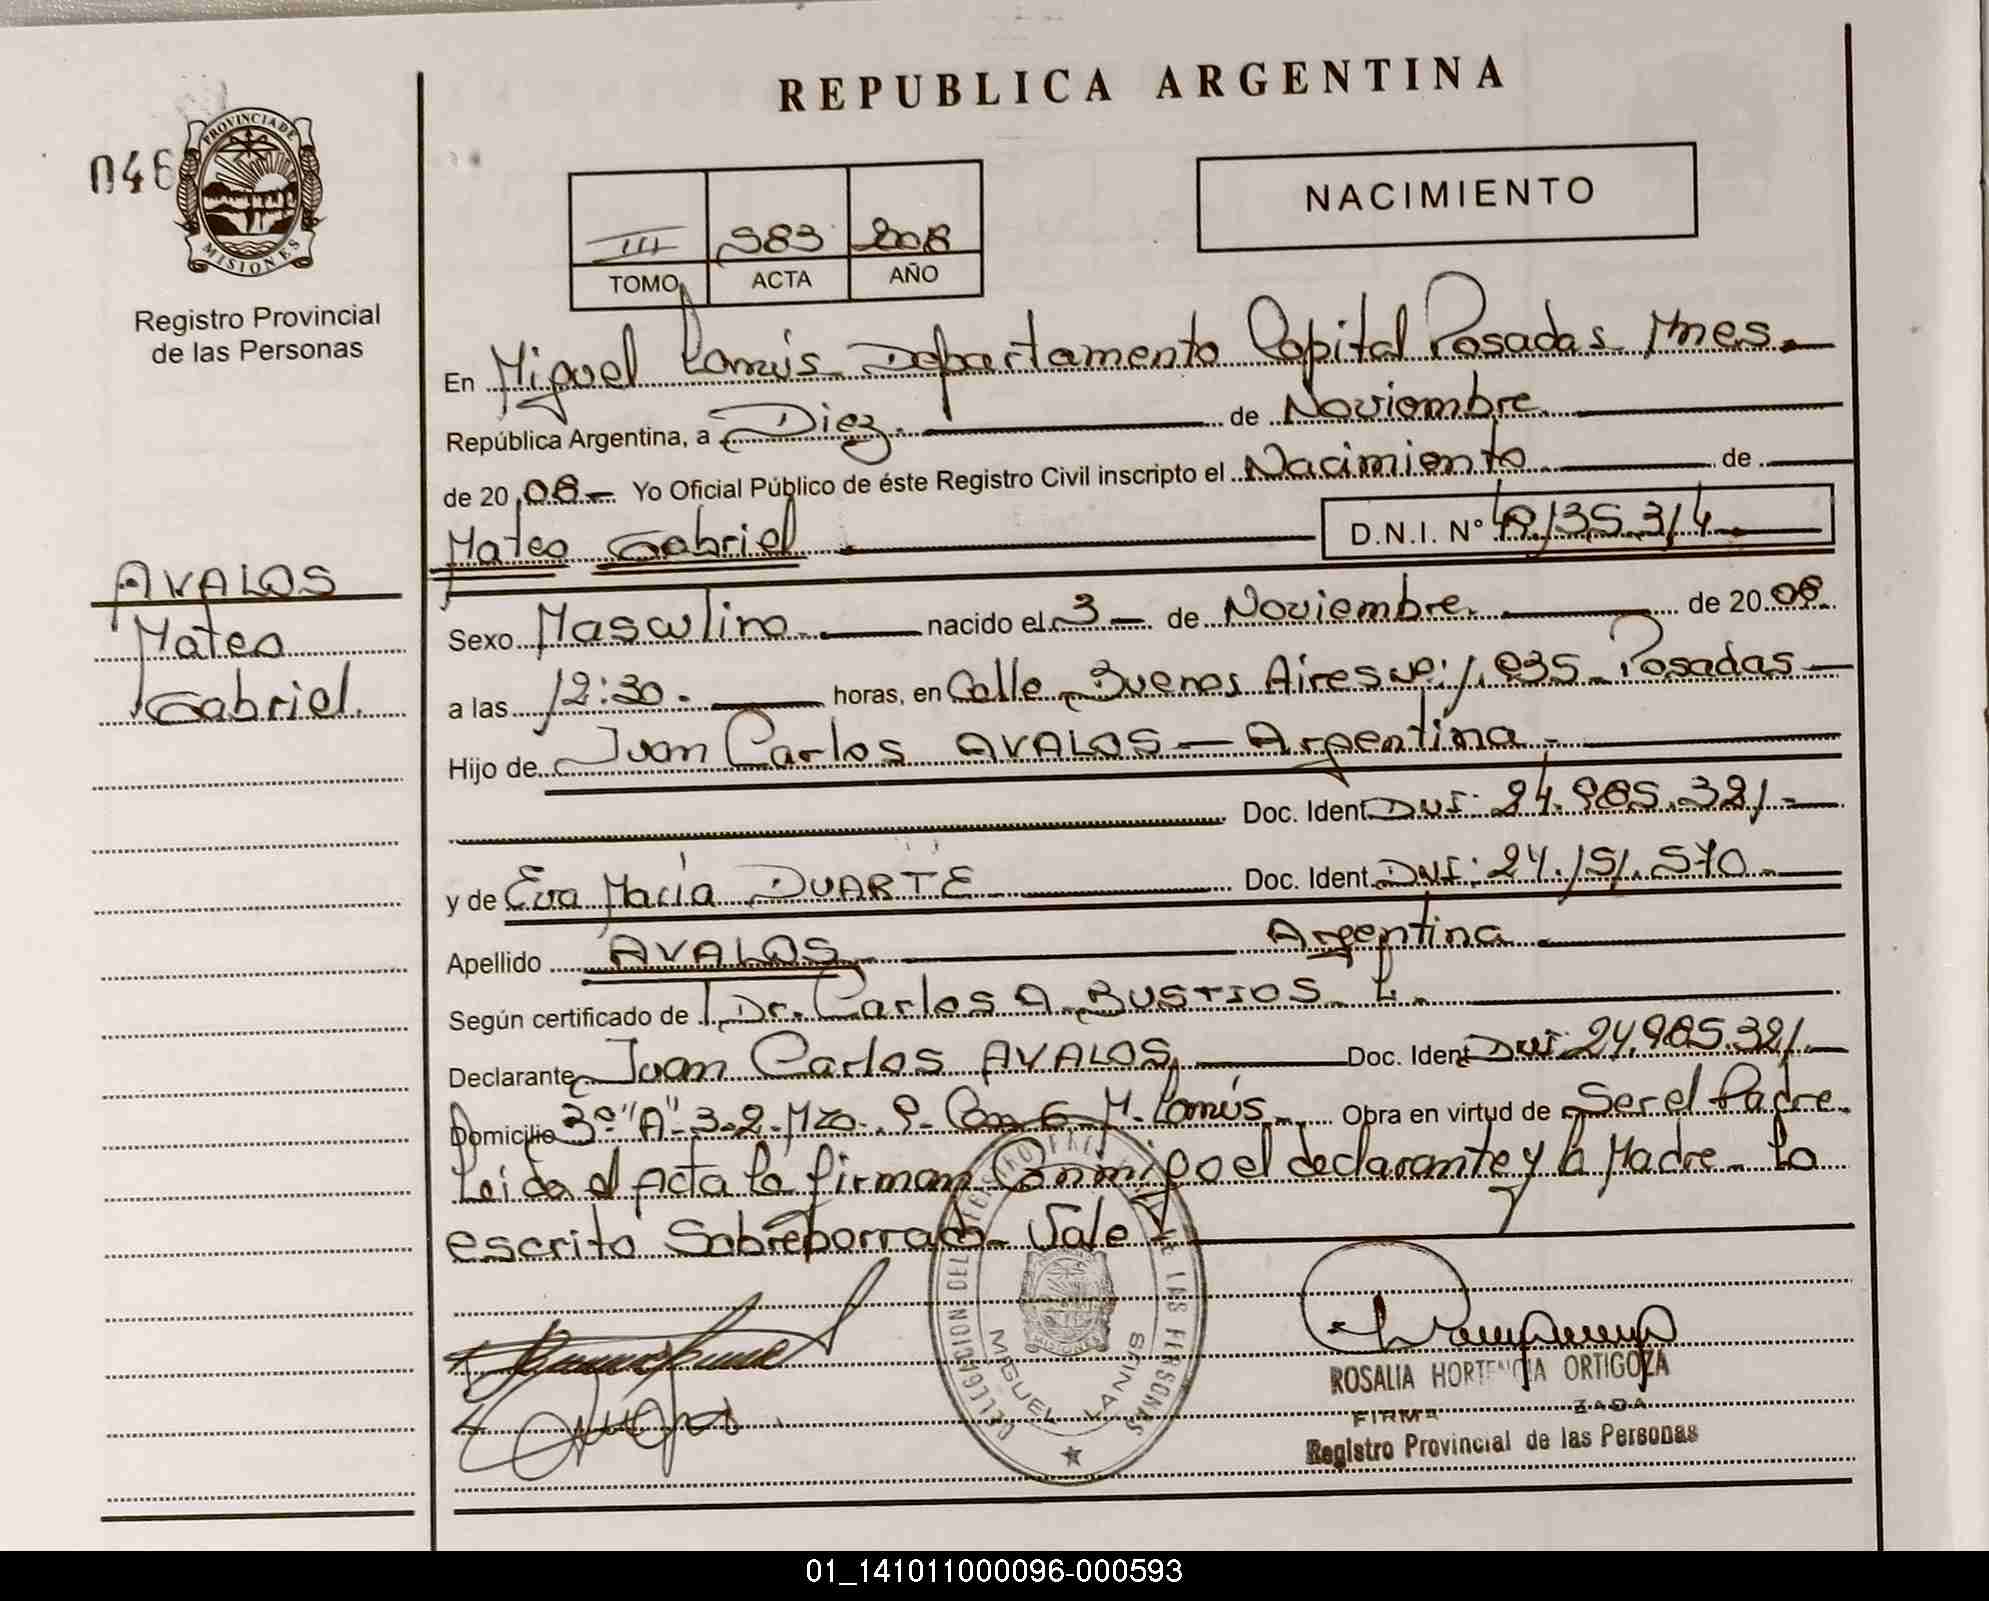 REPUBLICA ARGENTINA
046
PROVINCIA DE
MISIONES
Registro Provincial
de las Personas
NACIMIENTO
III 983 2008
TOMO ACTA AÑO
En Miguel Lanús Departamento Capital Posadas Mnes.
República Argentina, a Diez. de Noviembre
de 2008 Yo Oficial Público de éste Registro Civil inscripto el Nacimiento de
Mateo Gabriel D.N.I. N° 49.135.314
AVALOS
Mateo
Gabriel.
Sexo Masculino nacido el 3 de Noviembre. de 2008.
a las 12:30. horas, en Calle Buenos Aires Nº: 1.035 Posadas
Hijo de Juan Carlos AVALOS - Argentina.
Doc. Ident. DNI: 24.985.321.
y de Eva María DUARTE Doc. Ident. DNI: 24.151.570.
Apellido AVALOS Argentina
Según certificado de Dr. Carlos A. BUSTIOS L.
Declarante Juan Carlos AVALOS Doc. Ident DNI: 24.985.321.
Domicilio 3º "A" 3-2-Mzo. M. Lanús. Obra en virtud de Ser el Padre
Leida el Acta la firman Conmigo el declarante y la Madre - Lo
escrito Sobreborrado Vale
DELEGACION DEL REGISTRO PROVINCIAL DE LAS PERSONAS
MIGUEL LANUS
ROSALIA HORTENCIA ORTIGOZA
Registro Provincial de las Personas
01_141011000096-000593